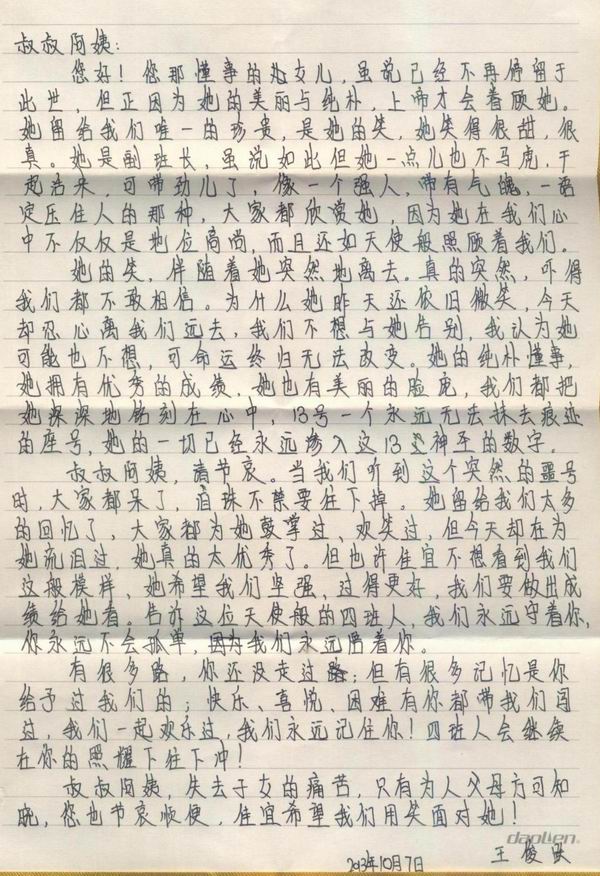 叔叔阿姨:
您好！您那懂事的女儿,虽说已经不再停留于
此世,但正因为她的美丽与纯朴,上帝才会看顾她。
她留给我们唯一的珍贵,是她的笑,她笑得很甜,很
真。她是副班长,虽说如此但她一点儿也不马虎,干
起活来,可带劲儿了,像一个强人,带有气魄,一言
定压住人的那种,大家都欣赏她,因为她在我们心
中不仅仅是地位高尚,而且还如天使般照顾着我们。
她的笑,伴随着她突然地离去。真的突然,吓得
我们都不敢相信。为什么她昨天还依旧微笑,今天
却忍心离我们远去,我们不想与她告别,我认为她
可能也不想,可命运终归无法改变。她的纯朴懂事,
她拥有优秀的成绩,她也有美丽的脸庞,我们都把
她深深地铭刻在心中,13号一个永远无法抹去痕迹
的座号,她的一切已经永远渗入这13这神圣的数字。
叔叔阿姨,请节哀。当我们听到这个突然的噩号
时,大家都呆了,泪珠不禁要往下掉。她留给我们太多
的回忆了,大家都为她鼓掌过、欢笑过,但今天却在为
她流泪过,她真的太优秀了。但也许佳宜不想看到我们
这般模样,她希望我们坚强,过得更好,我们要做出成
绩给她看。告诉这位天使般的四班人,我们永远守着你,
你永远不会孤单,因为我们永远陪着你。
有很多路,你还没走过路;但有很多记忆是你
给予过我们的;快乐、喜悦、困难有你都带我们闯
过,我们一起欢乐过,我们永远记住你！四班人会继续
在你的照耀下往下冲！
叔叔阿姨,失去子女的痛苦,只有为人父母方可知
晓,您也节哀顺便,佳宜希望我们用笑面对她！
王俊
2013年10月7日
daoblien.